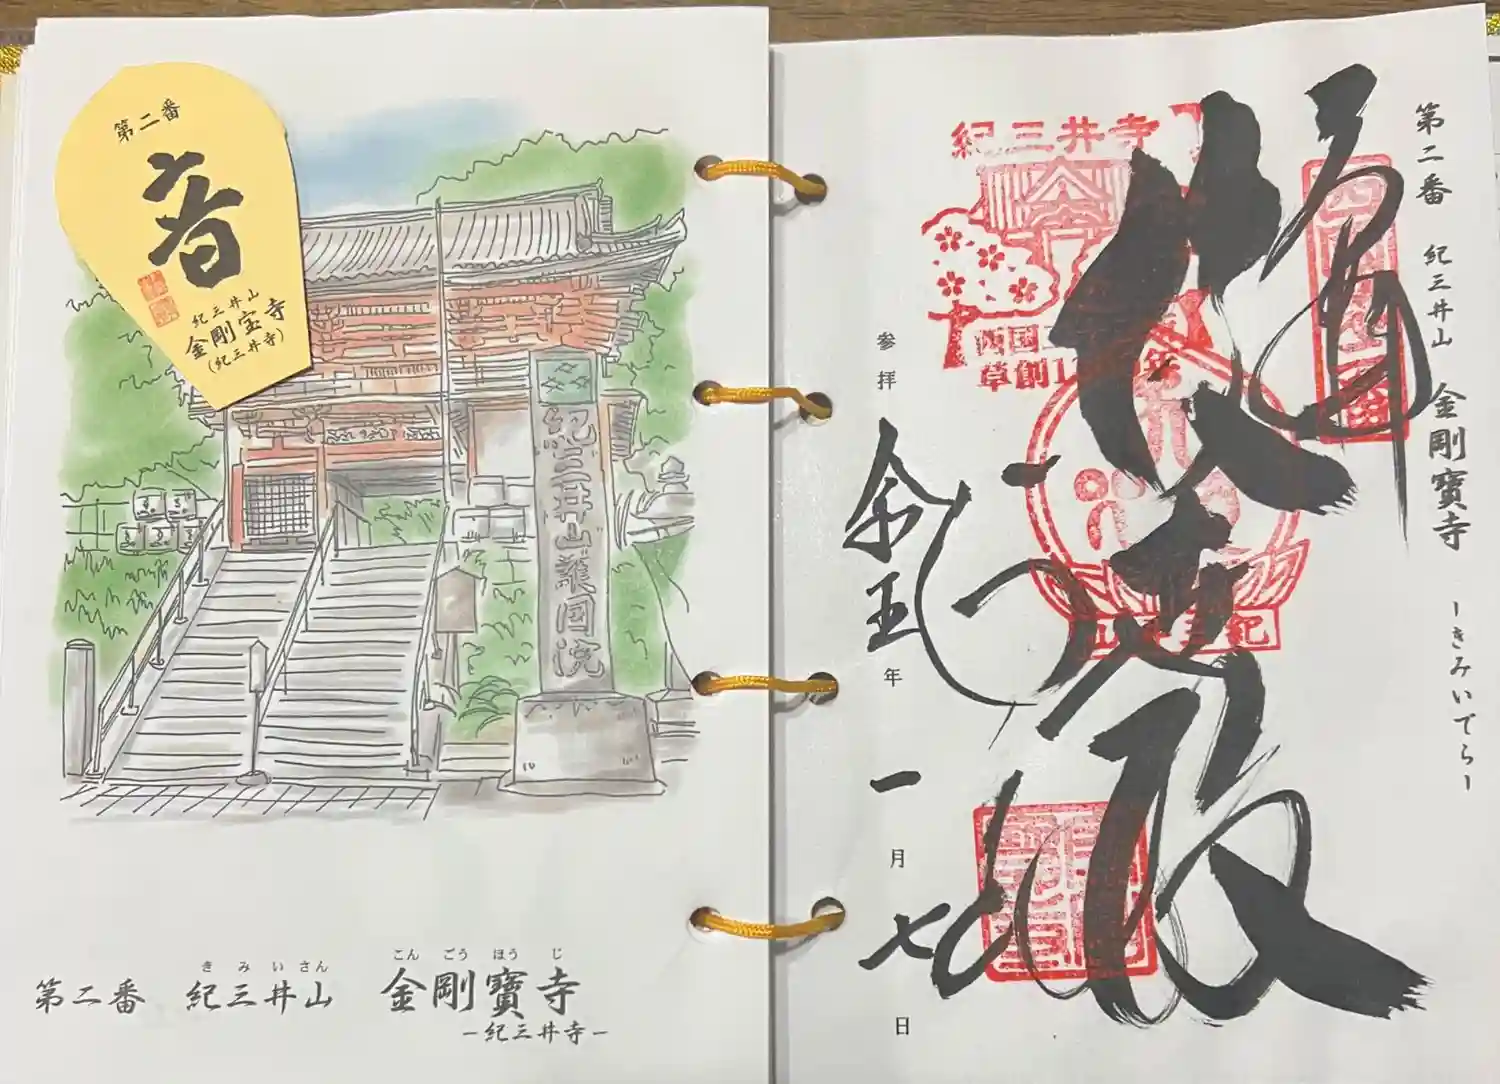 第二番
紀三井山
金剛宝寺
(紀三井寺)
紀三井山護国院
きみいさん こんごうほうじ
第二番 紀三井山 金剛寶寺
ー紀三井寺ー
第二番 紀三井山 金剛寶寺 ーきみいでらー
救世殿
紀三井寺
西国
草創1
年
参拝
年
一月
七
日